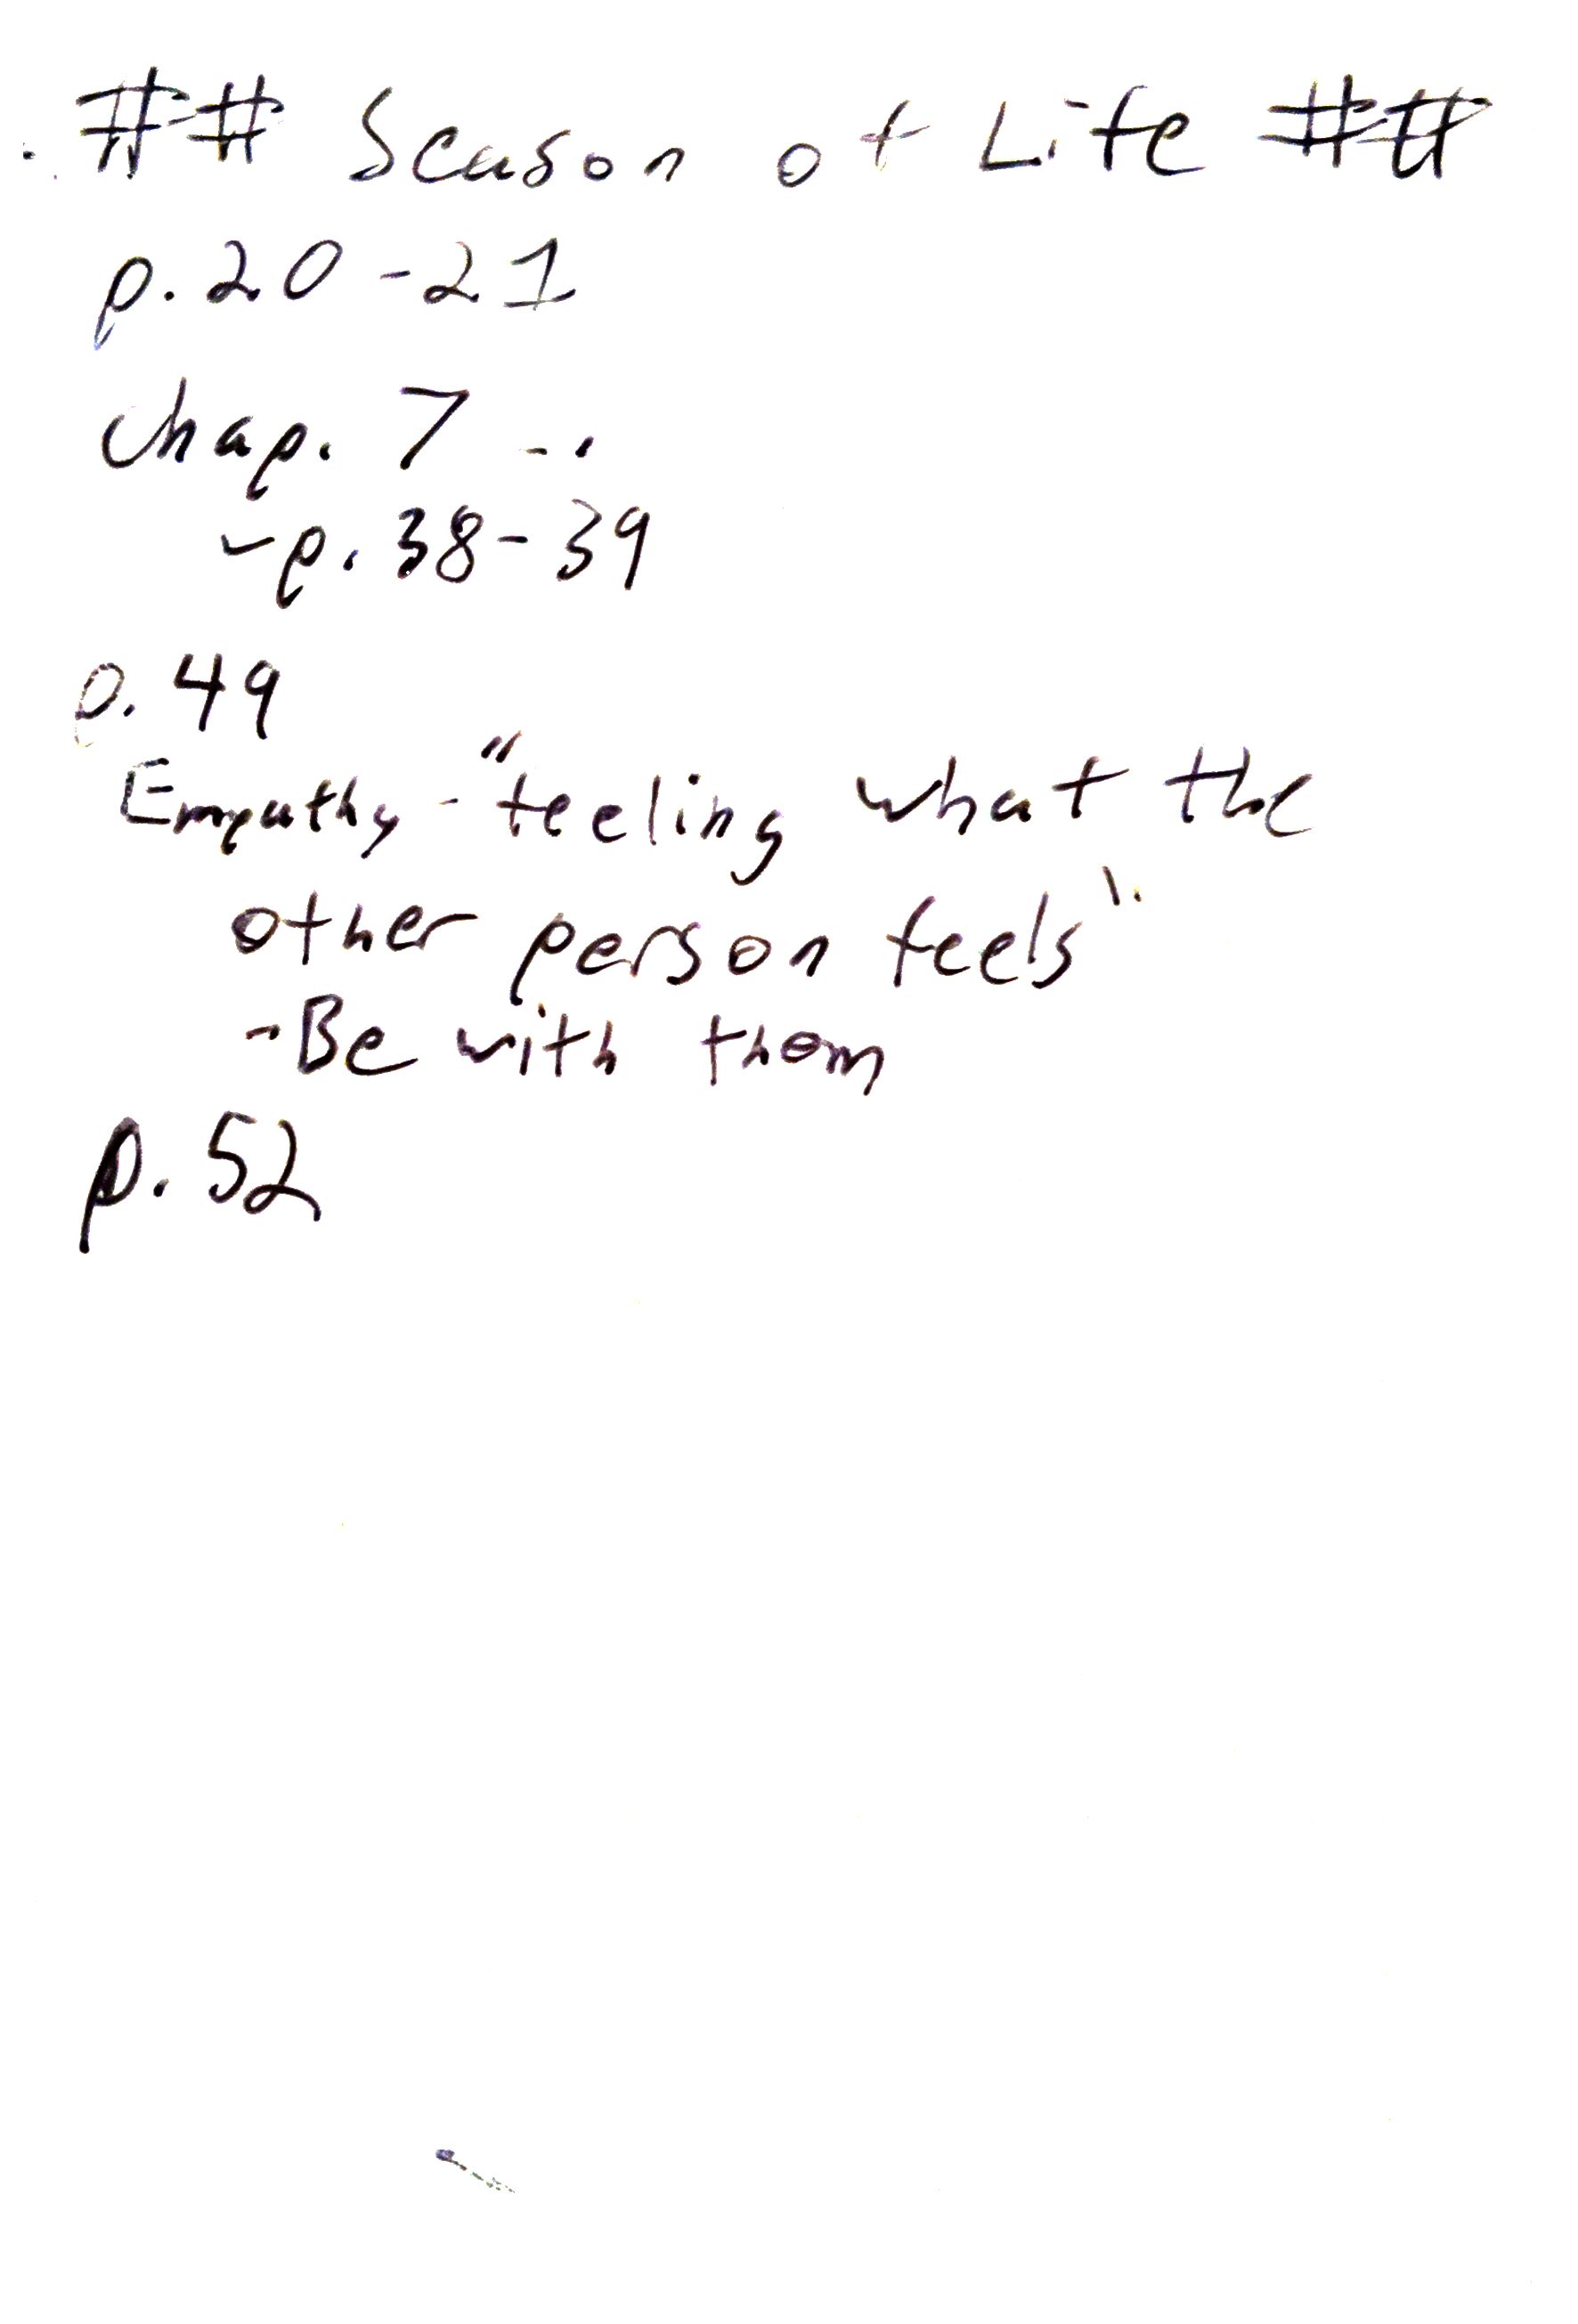 ## Season of Life ##
p. 20-21
Chap. 7 -..
-p. 38-39
p. 49
Empathy - "feeling what the
other person feels".
-Be with them
p. 52